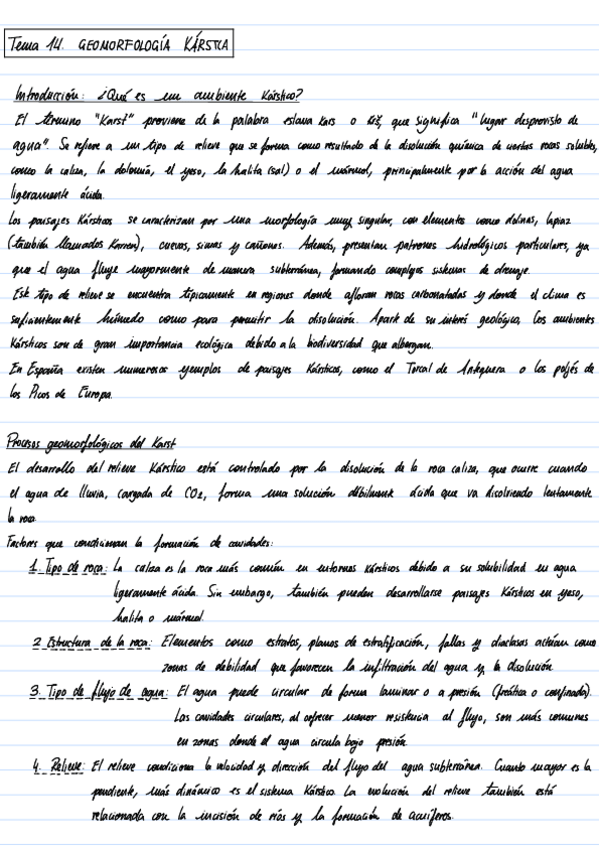 Tema 14. GEOMORFOLOGÍA KÁRSTICA
Introducción: ¿Qué es un ambiente Kárstico?
El término "Karst" proviene de la palabra eslava Kars o Krš, que significa "lugar desprovisto de
agua". Se refiere a un tipo de relieve que se forma como resultado de la disolución química de ciertas rocas solubles,
como la caliza, la dolomía, el yeso, la halita (sal) o el mármol, principalmente por la acción del agua
ligeramente ácida.
Los paisajes Kársticos se caracterizan por una morfología muy singular, con elementos como dolinas, lapiaz
(también llamados Karren), cuevas, simas y cañones. Además, presentan patrones hidrológicos particulares, ya
que el agua fluye mayormente de manera subterránea, formando complejos sistemas de drenaje.
Este tipo de relieve se encuentra típicamente en regiones donde afloran rocas carbonatadas y donde el clima es
suficientemente húmedo como para permitir la disolución. Aparte de su interés geológico, los ambientes
Kársticos son de gran importancia ecológica debido a la biodiversidad que albergan.
En España existen numerosos ejemplos de paisajes Kársticos, como el Torcal de Antequera o los poljés de
los Picos de Europa.
Procesos geomorfológicos del Karst
El desarrollo del relieve Kárstico está controlado por la disolución de la roca caliza, que ocurre cuando
el agua de lluvia, cargada de CO₂, forma una solución débilmente ácida que va disolviendo lentamente
la roca.
Factores que condicionan la formación de cavidades:
1. Tipo de roca: La caliza es la roca más común en entornos Kársticos debido a su solubilidad en agua
ligeramente ácida. Sin embargo, también pueden desarrollarse paisajes Kársticos en yeso,
halita o mármol.
2. Estructura de la roca: Elementos como estratos, planos de estratificación, fallas y diaclasas actúan como
zonas de debilidad que favorecen la infiltración del agua y la disolución.
3. Tipo de flujo de agua: El agua puede circular de forma laminar o a presión (freática o confinada).
Las cavidades circulares, al ofrecer menor resistencia al flujo, son más comunes
en zonas donde el agua circula bajo presión.
4. Relieve: El relieve condiciona la velocidad y dirección del flujo del agua subterránea. Cuanto mayor es la
pendiente, más dinámico es el sistema Kárstico. La evolución del relieve también está
relacionada con la incisión de ríos y la formación de acuíferos.